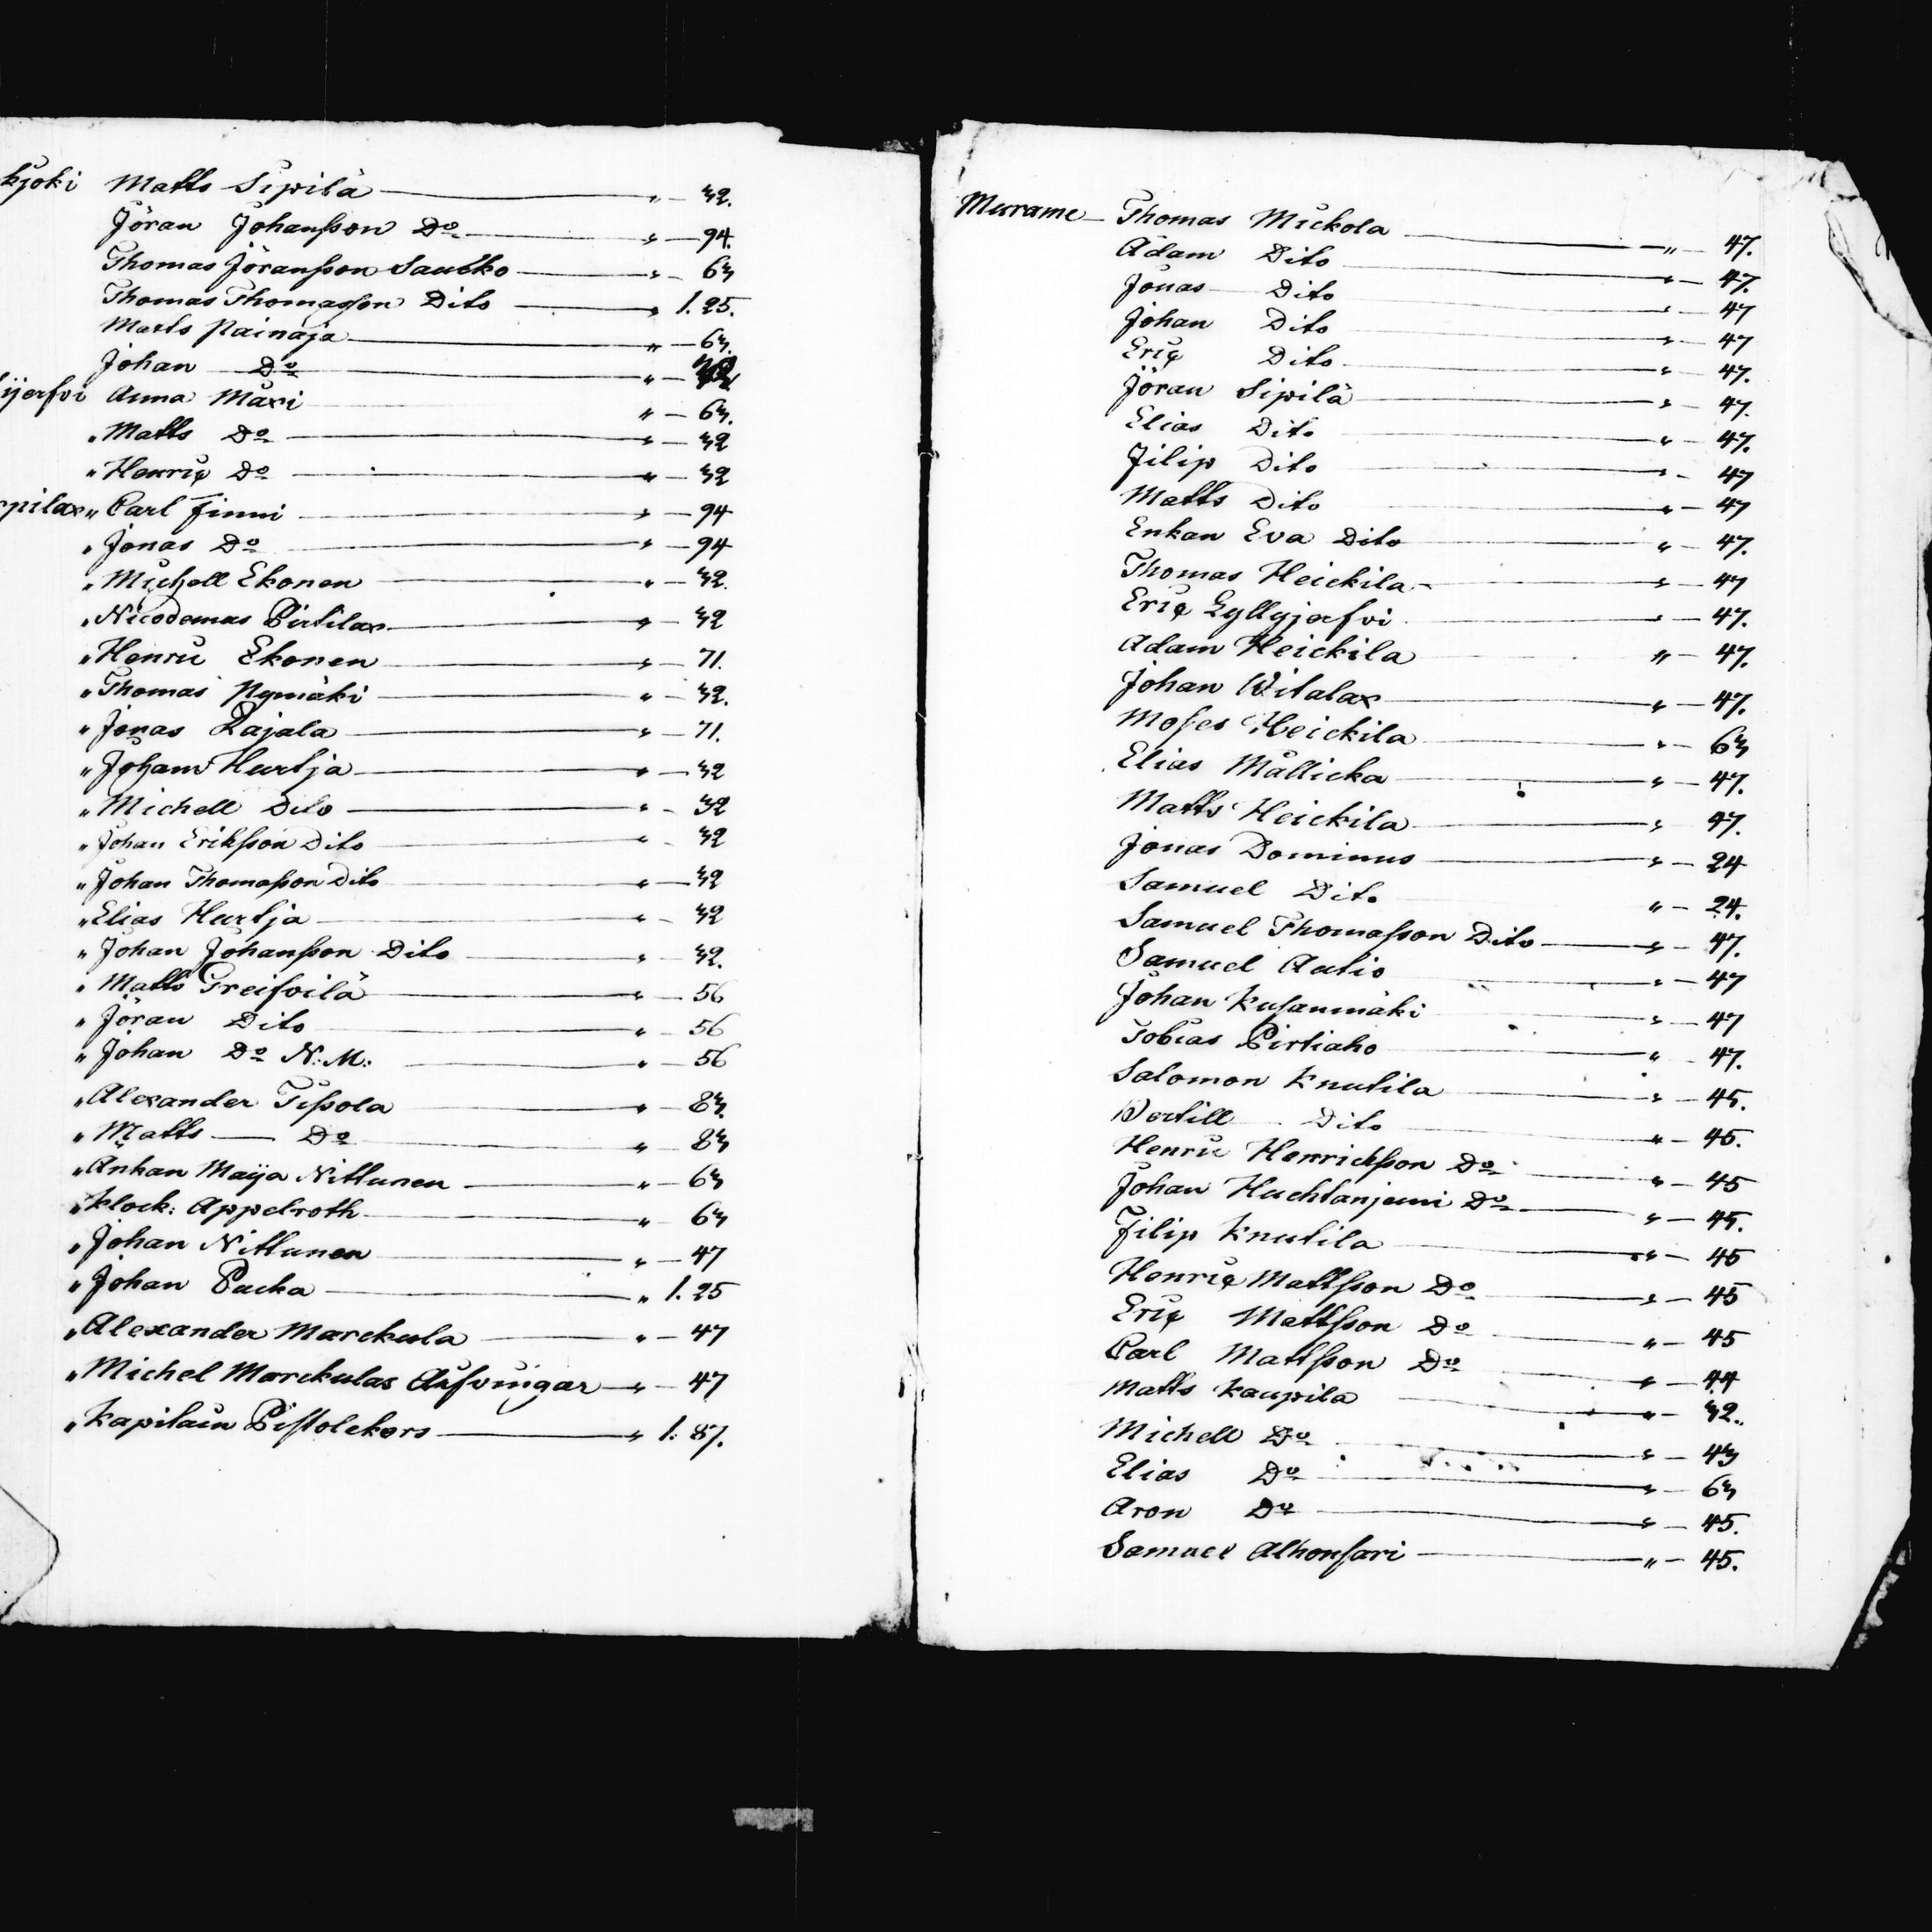 kjoki Matts Sipilä — „ — 32.
Jöran Johansson Do — „ — 94.
Thomas Jöransson Sautko — „ — 63
Thomas Thomasson Dito — „ 1. 25.
Matts Painaja — „ — 63.
Johan Do — „ —
ijerfvi Anna Mäxi „ — 63.
„ Matts Do — „ — 32
„ Henric Do — „ — 32
pilax „ Carl Finni — „ — 94
„ Jonas Do — „ — 94
„ Michell Ekonen — „ — 32.
„ Nicodemus Pirtilax — „ — 32
„ Henric Ekonen — „ — 71.
„ Thomas Nymäki — „ — 32.
„ Jonas Rajala — „ — 71.
„ Johan Hurtja — „ — 32
„ Michell Dito — „ — 32
„ Johan Eriksson Dito — „ — 32
„ Johan Thomasson Dito — „ — 32
„ Elias Hurtja — „ — 32
„ Johan Johansson Dito — „ — 32.
„ Matts Greifvilä — „ — 56
„ Jöran Dito — „ — 56
„ Johan Do N: M: — „ — 56
„ Alexander Tissola — „ — 83.
„ Matts — Do — „ — 83
„ Änkan Maija Nittunen — „ — 63
„ Klock: Appelroth — „ — 63
„ Johan Nittunen — „ — 47
„ Johan Pucka — „ 1. 25
„ Alexander Marckula — „ — 47
„ Michel Marckulas Arfvingar — „ — 47
„ Kapitain Pistolekors — „ 1. 87.
Murame — Thomas Mickola — „ — 47.
Adam Dito — „ — 47.
Jonas Dito — „ — 47
Johan Dito — „ — 47
Eric Dito — „ — 47.
Jöran Sipilä — „ — 47.
Elias Dito — „ — 47.
Filip Dito — „ — 47
Matts Dito — „ — 47
Enkan Eva Dito — „ — 47.
Thomas Heickila — „ — 47
Eric Lyllyjerfvi — „ — 47.
Adam Heickila „ — 47.
Johan Witalax — „ — 47.
Moses Heickila — „ — 63
Elias Mällicka — „ — 47.
Matts Heickila — „ 47.
Jonas Dominus — „ — 24
Samuel Dito „ — 24.
Samuel Thomasson Dito — „ — 47.
Samuel Autio — „ — 47
Johan Kusanmäki — „ — 47
Tobias Pirtiaho — „ — 47.
Salomon Knutila — „ — 45.
Bertill Dito — „ — 45.
Henric Henricksson Do — „ — 45
Johan Huchtanjemi Do — „ — 45.
Filip Knutila — „ — 45
Henric Mattsson Do — „ — 45
Eric Mattsson Do — „ — 45
Carl Mattsson Do — „ — 44
Matts Kaupila — „ — 32.
Michell Do — „ — 43
Elias Do — „ — 63
Aron Do — „ — 45.
Samuel Alhonsari — „ — 45.